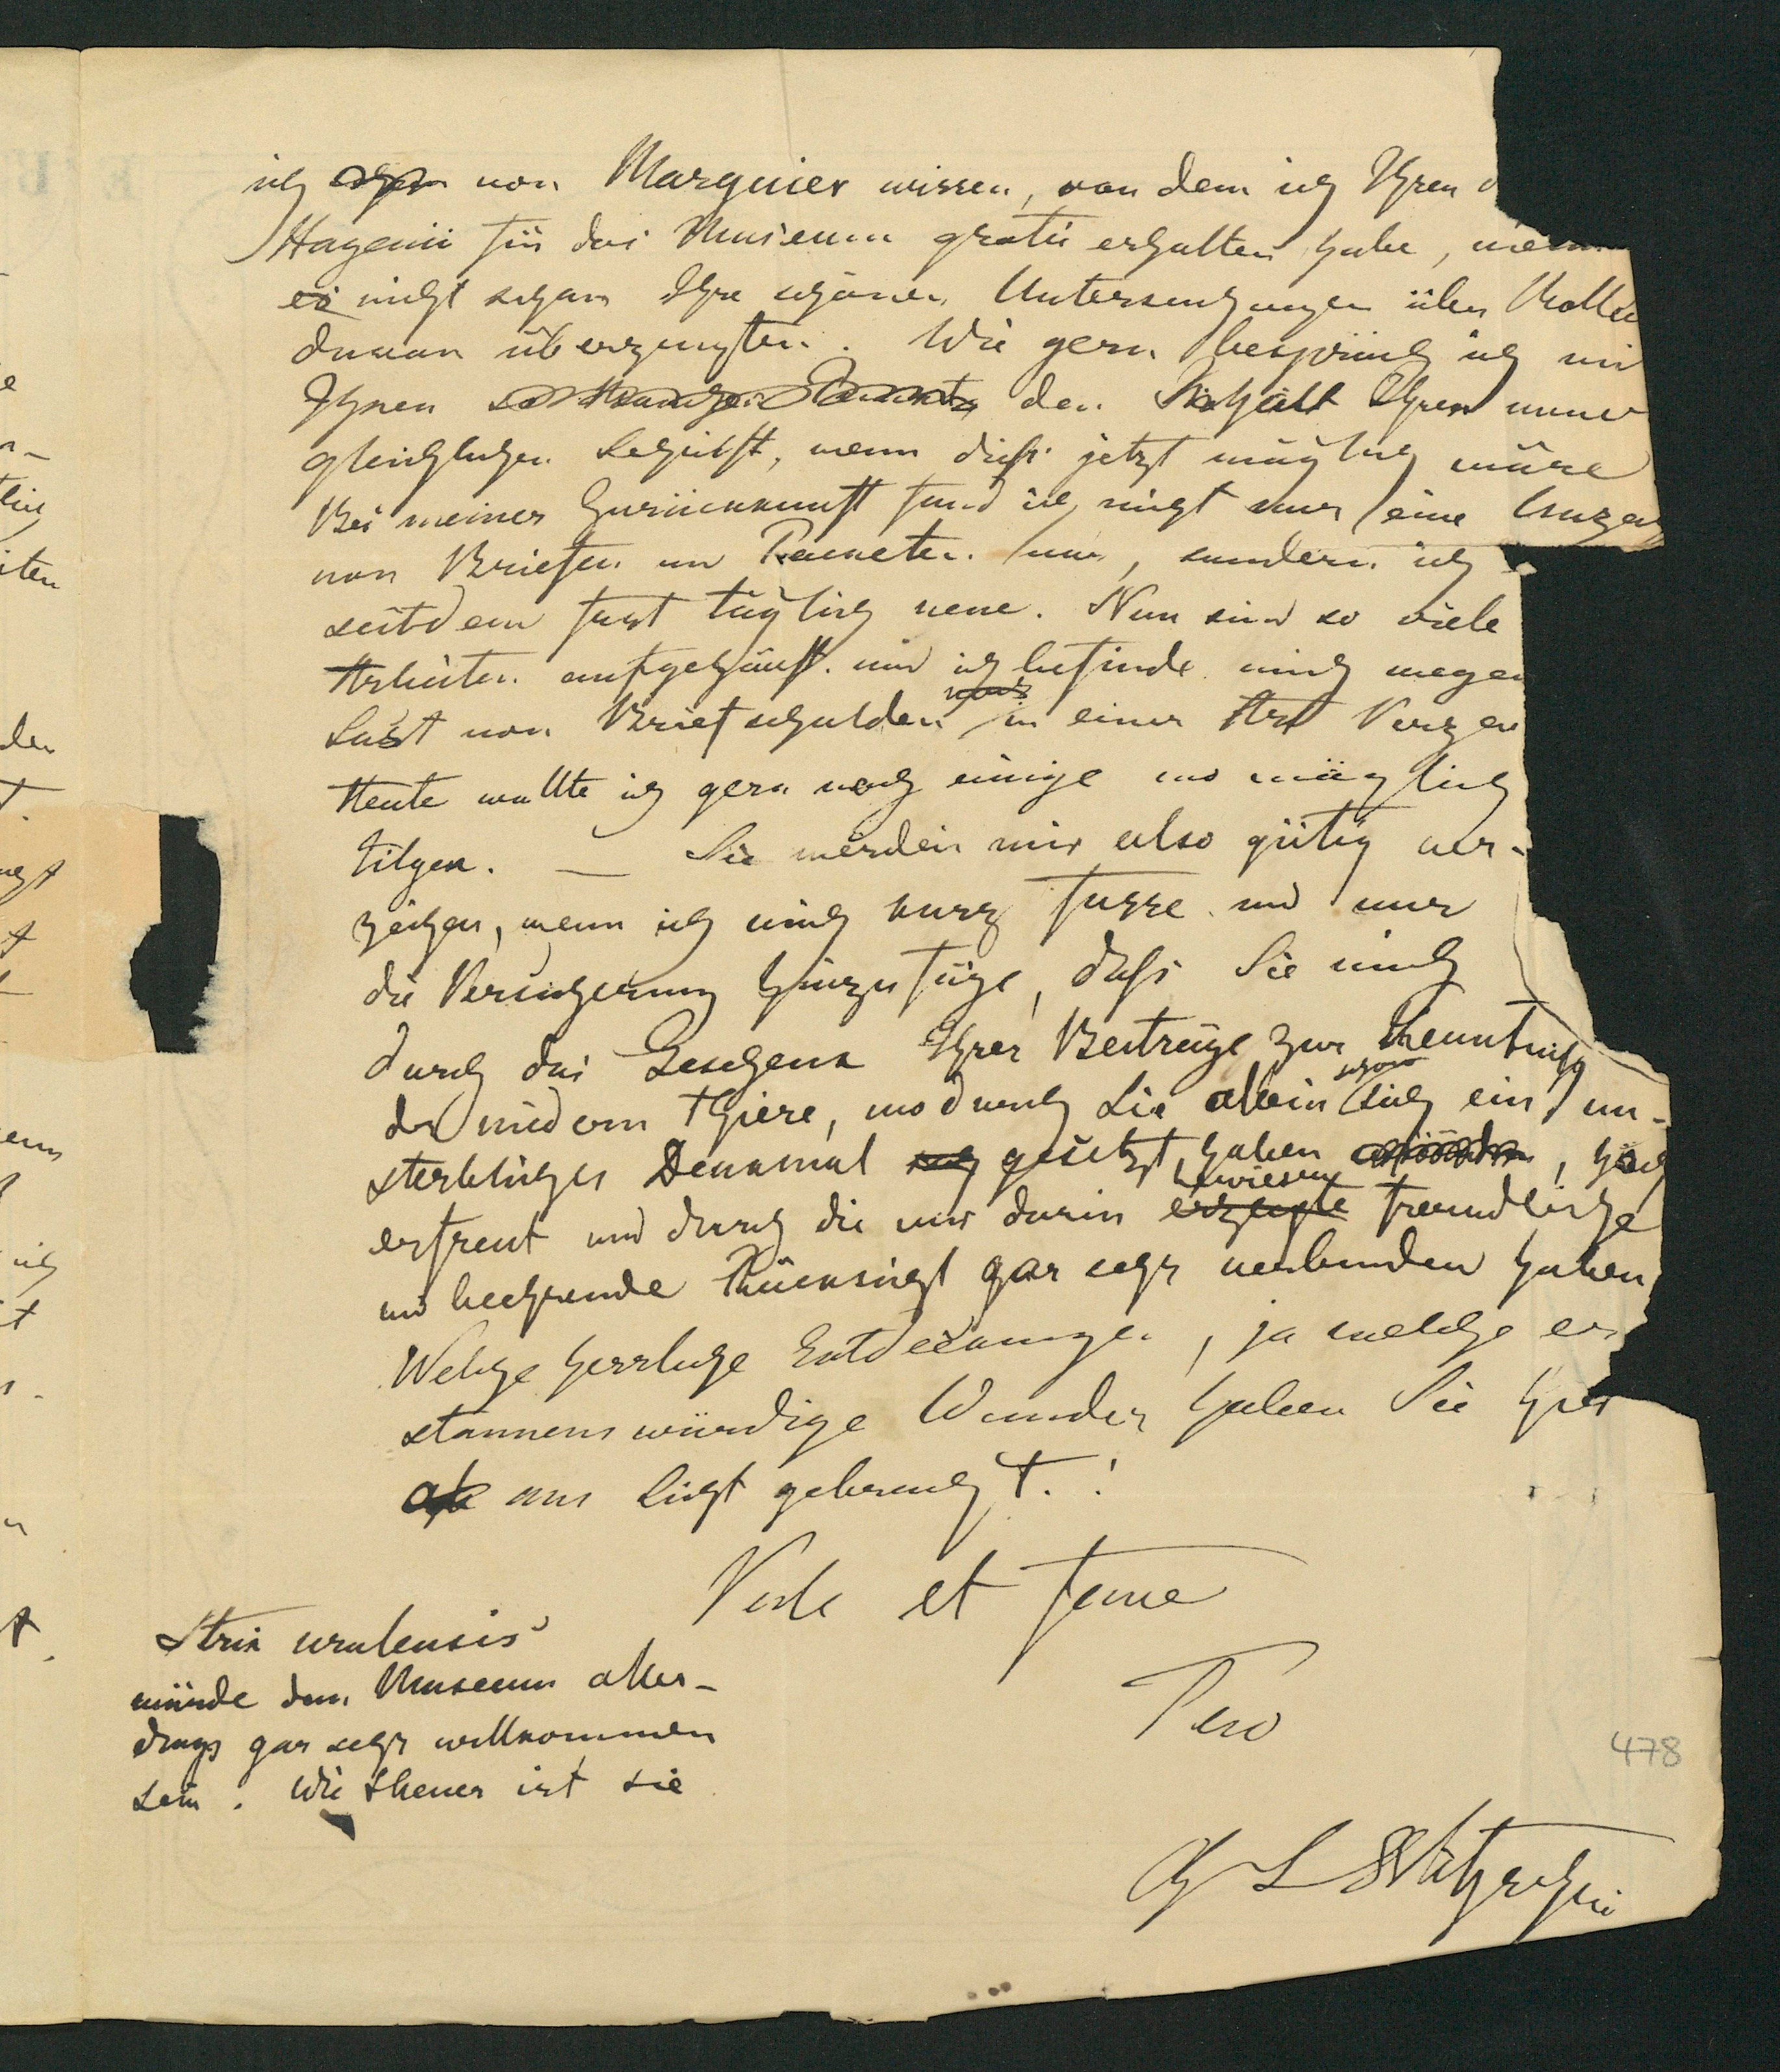 ich von Marguier wissen, von dem ich Ihren
Hagenii für das Museum gratis erhalten habe, wenn
es nicht schon Ihre schönen Untersuchungen über
davon überzeugten. Wie gern bespräch ich mi
Ihnen den Inhalt Ihrer
Schrift, wenn dieß jetzt möglich wäre
Bei meiner Zurückkunft fand ich nicht nur eine
von Briefen und Packeten vor, sondern ich
seitdem fast täglich neue. Nun sind so viele
Arbeiten aufgehäuft und ich befinde mich wegen
Last von Briefschulden in einer Art
Heute wollte ich gern noch einige wo möglich
tilgen. — Sie werden mir also gütig ver-
zeihen, wenn ich mich kurz fasse und nur
die Versicherung hinzufüge, daß Sie mich
durch das Geschenk Ihrer Beiträge zur Kenntniß
der niedern Thiere, wodurch Sie allein schon sich ein un-
sterbliches Denkmal gesetzt haben, hoch
erfreut und durch die mir darin bewiesene freundliche
und beehrende Rücksicht gar sehr verbunden haben
Welche herrliche Entdeckungen, ja welche er
staunenswürdige Wunder haben Sie hier
ans Licht gebracht!
Vale et fave
Tuo
478
Strix uralensis
würde dem Museum aller-
dings gar sehr willkommen
sein. Wie theuer ist sie